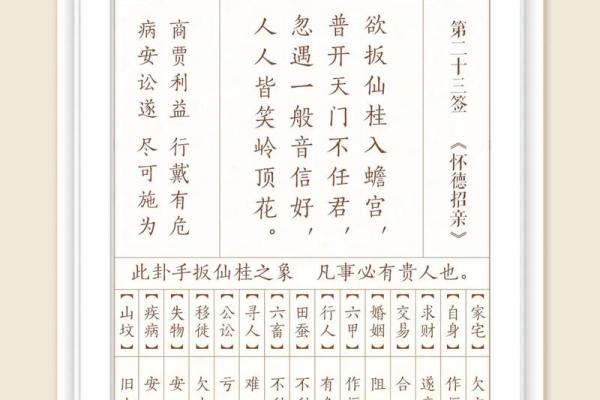 第二十三签 《怀德招亲》
欲扳仙桂入蟾宫，
普开天门不任君，
忽遇一般音信好，
人人皆笑岭顶花。
商贾利益 行戴有危
病安讼遂 尽可施为
此卦手扳仙桂之象 凡事必有贵人也。
【家宅】欠
【自身】作
【求财】遂
【交易】合
【婚姻】阻
【六甲】作
【行人】有
【田蚕】不
【六畜】不
【寻人】难
【公讼】亏
【移徙】欠
【失物】安
【疾病】安
【山坟】旧